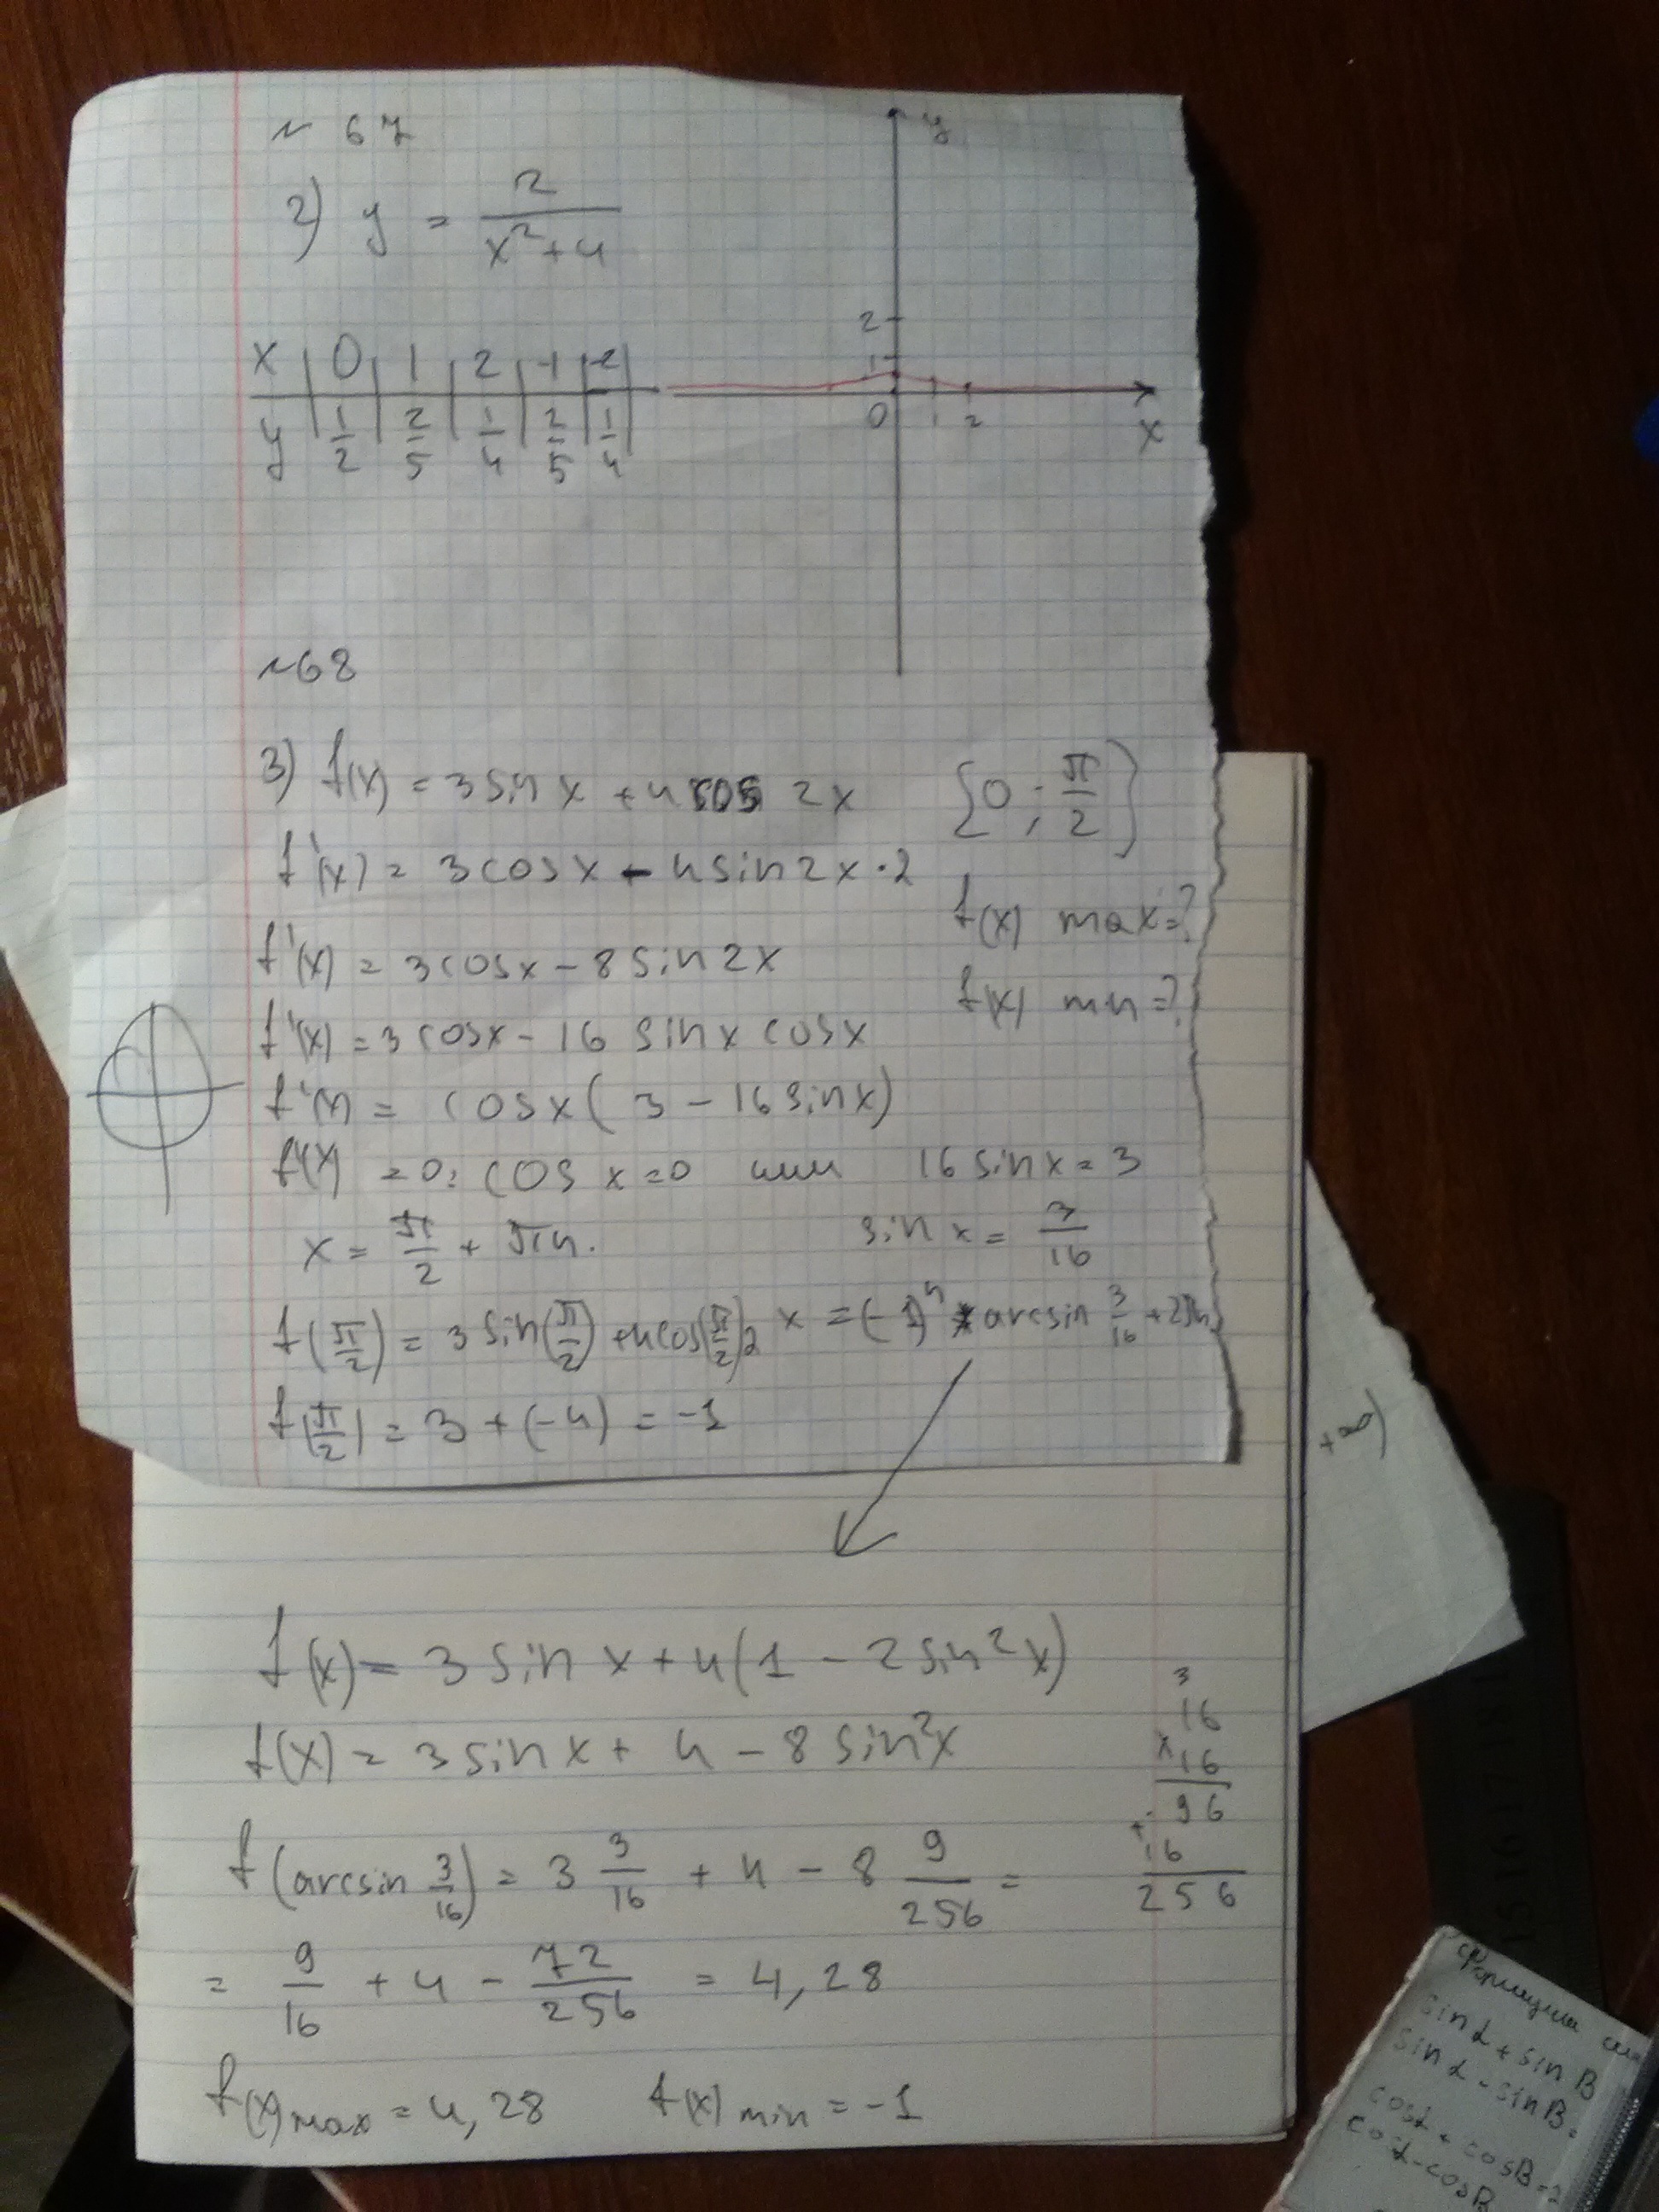 № 67
2) y = 2/(x²+4)
y
2
1
0 1 2
x
x | 0 | 1 | 2 | -1 | -2
y | 1/2 | 2/5 | 1/4 | 2/5 | 1/4
№68
3) f(x) = 3 sin x + 4 cos 2x {0; π/2}
f'(x) = 3cosx - 4sin2x·2
f(x) max=?
f'(x) = 3cosx - 8 sin2x
f(x) min=?
f'(x) = 3 cosx - 16 sinx cosx
f'(x) = cosx( 3 - 16 sinx)
f'(x) = 0: cos x=0 или 16 sinx = 3
x = π/2 + πn. sin x = 3/16
f(π/2) = 3 sin(π/2) + 4cos(π/2)2 x = (-1)ⁿ arcsin 3/16 + 2πn
f(π/2) = 3 + (-4) = -1
+∞)
f(x) = 3 sin x + 4(1 - 2sin²x)
f(x) = 3 sin x + 4 - 8 sin²x
3
16
x 16
96
+ 16
256
f(arcsin 3/16) = 3 3/16 + 4 - 8 9/256 =
= 9/16 + 4 - 72/256 = 4,28
f(x) max = 4,28 f(x) min = -1
15 16 17 18 1
Формулы
sinα + sinB
sinα - sinB =
cosα + cosB = 2
cosα - cosB